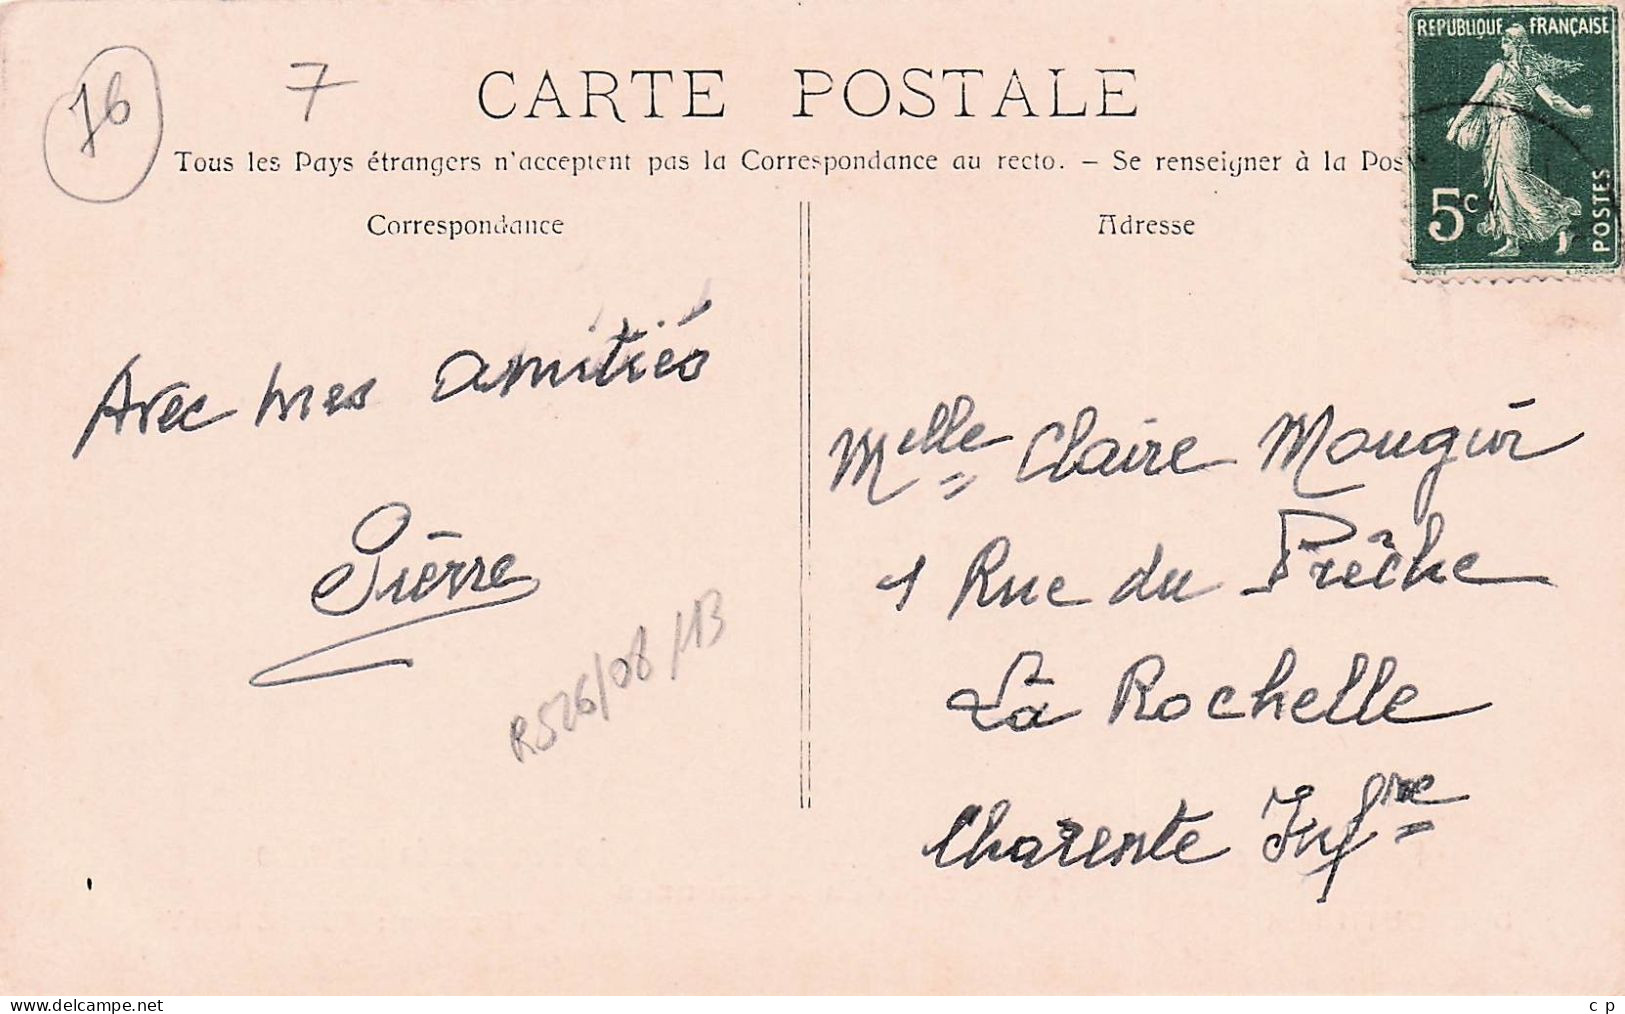 76
7
CARTE POSTALE
REPUBLIQUE FRANÇAISE
5c
POSTES
Tous les Pays étrangers n'acceptent pas la Correspondance au recto. — Se renseigner à la Pos
Correspondance
Adresse
Avec mes amitiés
Pierre
R526/08/13
Melle Claire Mougin
1 Rue du Prêche
La Rochelle
Charente Infre
www.delcampe.net
c p